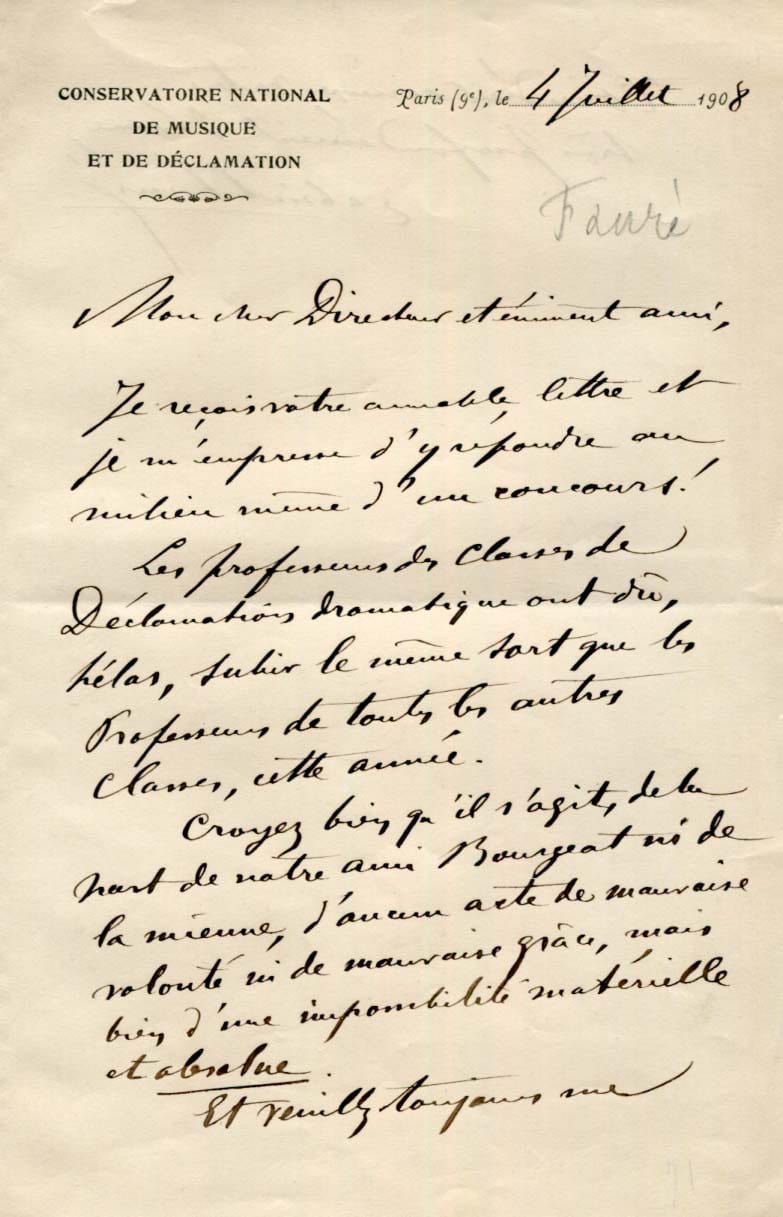 CONSERVATOIRE NATIONAL
DE MUSIQUE
ET DE DÉCLAMATION
Paris (9e), le 4 Juillet 1908
Fauré
Mon cher Directeur et éminent ami,
Je reçois votre aimable lettre et
je m'empresse d'y répondre au
milieu même d'un concours!
Les professeurs des Classes de
Déclamation dramatique ont dû,
hélas, subir le même sort que les
Professeurs de toutes les autres
Classes, cette année.
Croyez bien qu'il s'agit, de la
part de notre ami Bourgeat ni de
la mienne, d'aucun acte de mauvaise
volonté ni de mauvaise grâce, mais
bien d'une impossibilité matérielle
et absolue.
Et veuillez toujours me